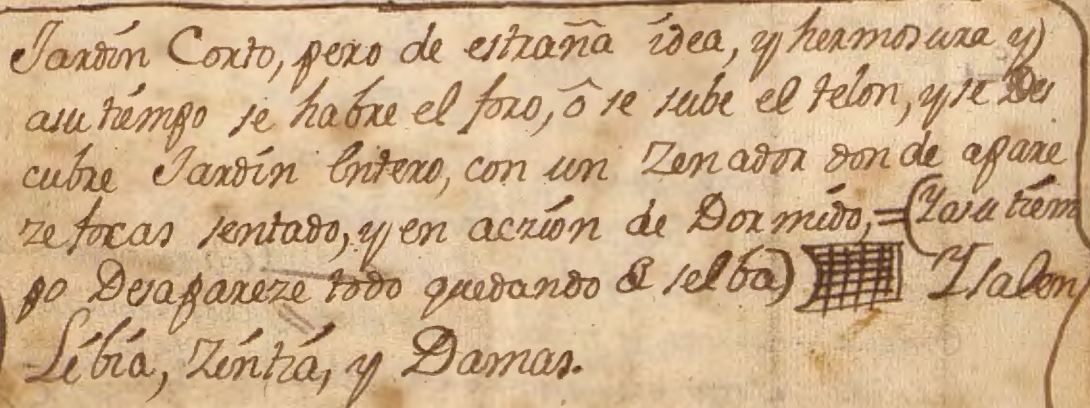 Jardín Corto, pero de estraña idea, y hermosura y
asu tiempo se habre el foro, ô se sube el telon, y se Des
cubre Jardín Entero, con un Zenador donde apare
ze focas sentado, y en aczion de Dormido, = (Y asu tiem
po Desapareze todo quedando selba) Y salen
Libia, Zintia, y Damas.